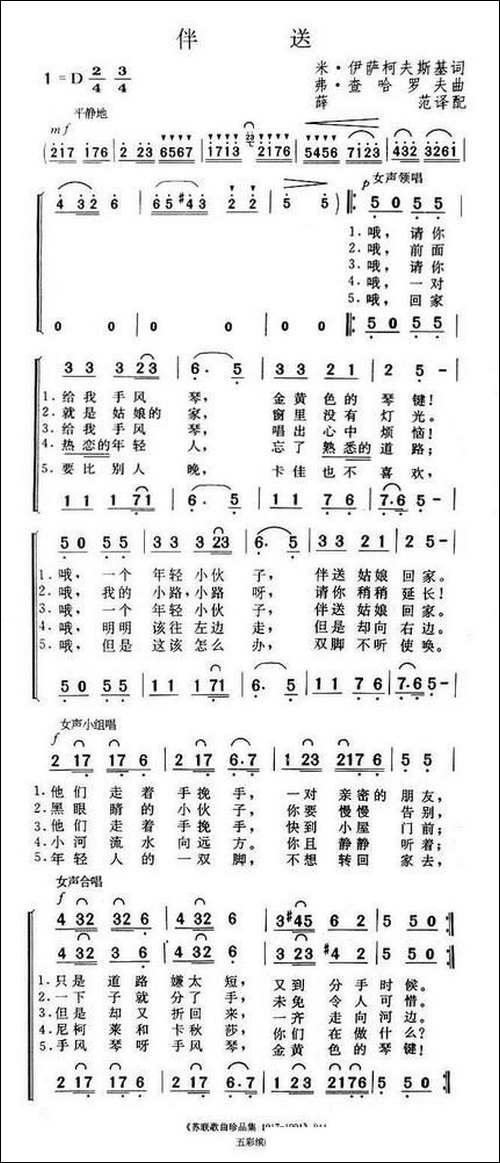 伴 送
1=D 2/4 3/4
米·伊萨柯夫斯基词
弗·查哈罗夫曲
薛 范译配
平静地
mf
(217 176 | 2 23 6567 | 1713 23 2176 | 5456 7123 | 432 3261
p 女声领唱
4 32 6 | 65 #43 2 2 | 5 5) ‖: 5 0 5 5
1.哦，请你
2.哦，前面
3.哦，请你
4.哦，一对
5.哦，回家
0 0 | 0 0 | 0 0 ‖: 5 0 5 5
3 3 3 23 | 6. 5 | 3 3 2 1 | 2 5 -
1.给我手风琴，金黄色的琴键！
2.就是姑娘的家，窗里没有灯光。
3.给我手风琴，唱出心中烦恼！
4.热恋的年轻人，忘了熟悉的道路；
5.要比别人晚，卡佳也不喜欢，
1 1 1 71 | 6. 5 | 1 1 7 6 | 7.6 5 -
5 0 5 5 | 3 3 3 23 | 6. 5 | 3 3 2 1 | 2 5 -
1.哦，一个年轻小伙子，伴送姑娘回家。
2.哦，我的小路，小路呀，请你稍稍延长！
3.哦，一个年轻小伙子，伴送姑娘回家。
4.哦，明明该往左边走，但是却向右边。
5.哦，但是这该怎么办，双脚不听使唤。
5 0 5 5 | 1 1 1 71 | 6. 5 | 1 1 7 6 | 7.6 5 -
女声小组唱
f
2 17 17 6 | 2 17 6.7 | 1 23 2176 | 5 5
1.他们走着手挽手，一对亲密的朋友，
2.黑眼睛的小伙子，你要慢慢告别，
3.他们走着手挽手，快到小屋门前；
4.小河流水向远方。你且静静听着；
5.年轻人的一双脚，不想转回家去，
女声合唱
f
4 32 32 6 | 4 32 32 6 | 3#45 6 2 | 5 5 0 :‖
4 32 32 6 | 4 32 32 6 | 3 23 #4 2 | 5 5 0 :‖
1.只是道路嫌太短，又到分手时候。
2.一下子就分了手，未免令人可惜。
3.但是却又折回来，一齐走向河边。
4.尼柯莱和卡秋莎，你们在做什么？
5.手风琴呀手风琴，金黄色的琴键！
2 17 17 6 | 2 17 6.7 | 1 23 2176 | 5 5 0 :‖
《苏联歌曲珍品集
五彩缤